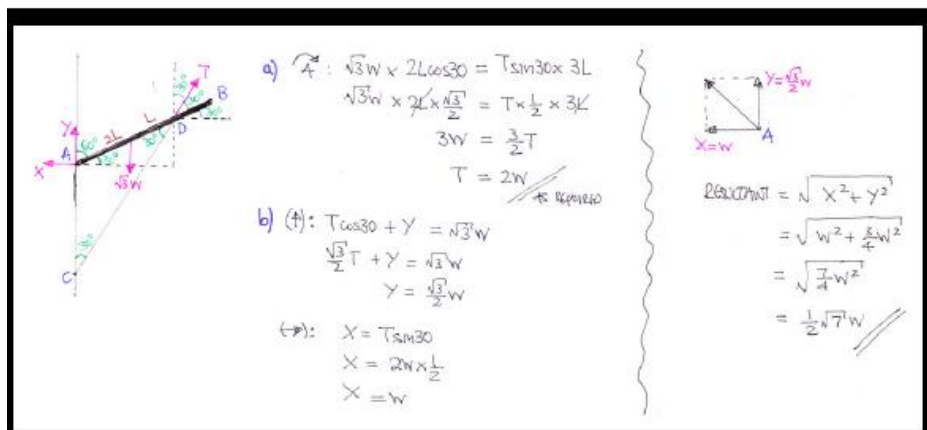 T
B
Y 60° 2L L D 30°
A 30° 30°
X
√3W
C
a) A: √3W × 2Lcos30 = Tsin30 × 3L
√3W × 2L × √3/2 = T × 1/2 × 3L
3W = 3/2 T
T = 2W
AS REQUIRED
b) (↑): Tcos30 + Y = √3W
√3/2 T + Y = √3W
Y = √3/2 W
(→): X = Tsin30
X = 2W × 1/2
X = W
Y = √3/2 W
A
X = W
RESULTANT = √(X² + Y²)
= √(W² + 3/4 W²)
= √(7/4 W²)
= 1/2 √7 W